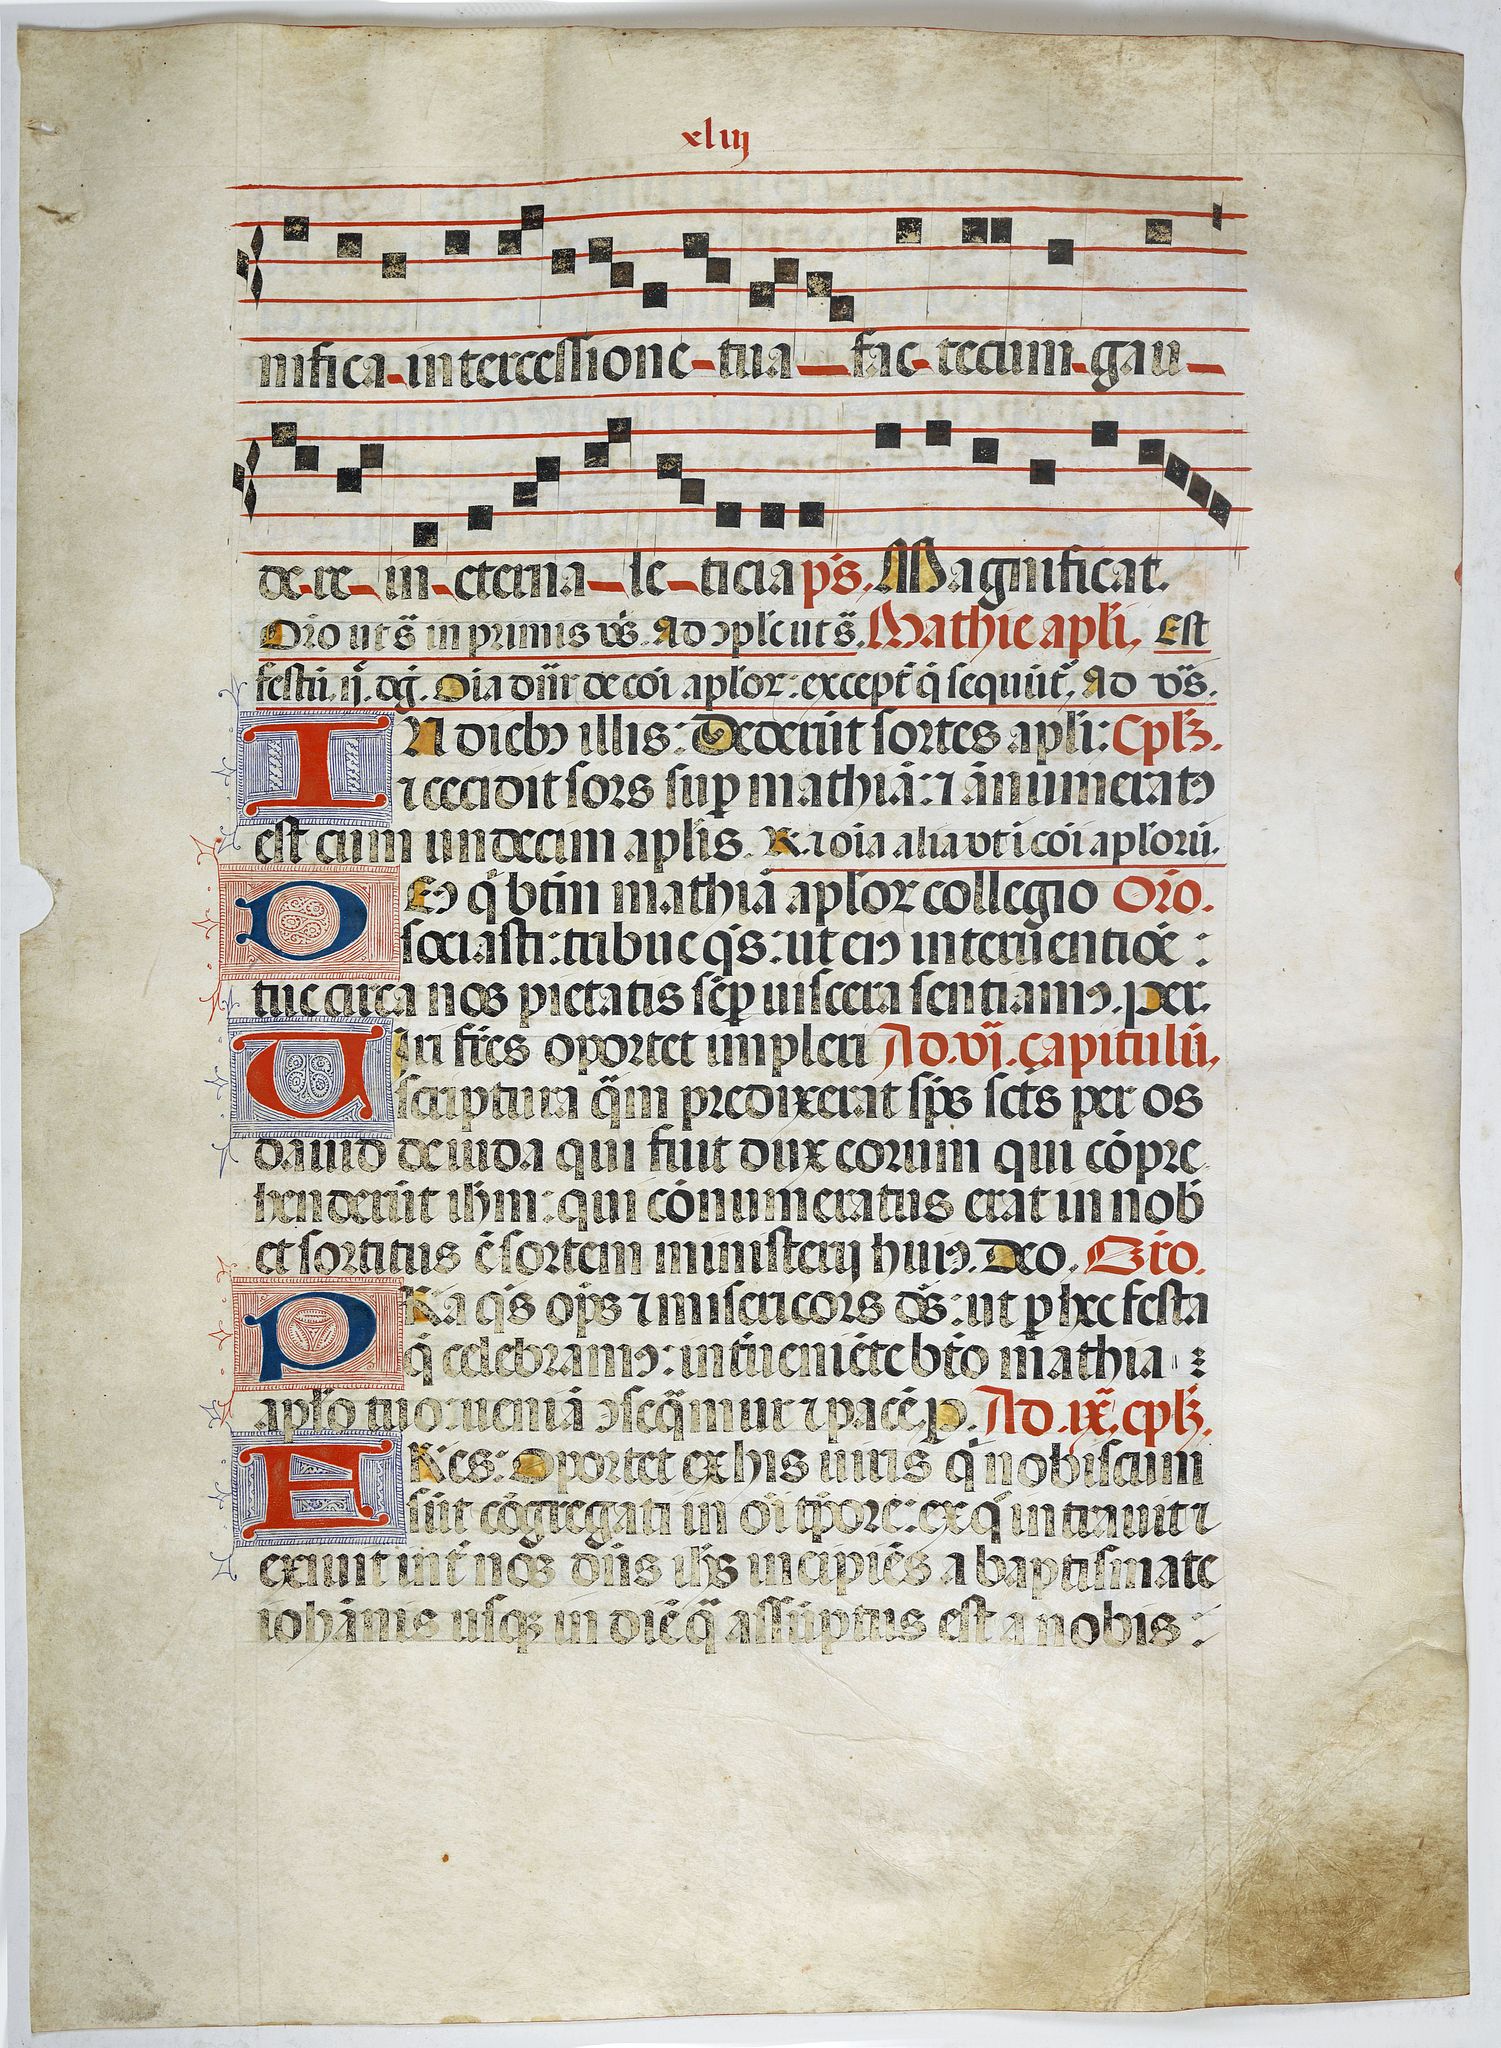 xliij
nifica intercessione tua fac tecum gau
de re in eterna le ticia ps̄. Magnificat.
Oro̅ ut s̄ in primis vs̄. Ad ↄplē ut s̄. Mathie apl̅i. Est
festū. ij. dḡ. Oi̅a dn̅r de coi̅ apl̅oꝝ: except̅ q̅ sequūt̅. Ad vs̄.
IN diebꝰ illis: Dederūt sortes apl̅i: Cpl̅ꝫ.
⁊ cecidit sors suꝑ mathiā: ⁊ ānumeratꝰ
est cum undecim apl̅is. R̅. ⁊ oi̅a alia vt i coi̅ apl̅orū.
DEꝰ q̅ btm̅ mathiā apl̅oꝝ collegio Oro̅.
sociasti: tribue qs̄: ut eiꝰ interuentiōe :
tue circa nos pietatis sēꝑ uiscera sentiamꝰ. per.
Uiri fr̅es oportet impleri Ad. vj. capitulū.
scriptura q̅m predixerat sp̅s sct̅s per os
dauid de iuda qui fuit dux eorum qui cōpre
henderūt ihm̅: qui cōnumeratus erat in nob̅
et sortitus ē sortem ministerij huiꝰ. Deo. Oro̅.
PRa qs̄ op̅s ⁊ misericors ds̄: ut ꝑ hec festa
q̅ celebramꝰ: int̅ueniēte bt̅o mathia
apl̅o tuo: ueniā ↄseq̅mur ⁊ pacē. ꝑ. Ad. ix. cpl̅ꝫ.
FRes: Oportet ex his uiris q̅ nobiscum
sūt cōgregati in oi̅ tp̅ore: ex q̅ intrauit ⁊
exiuit int̅ nos dn̅s ihs̅ incipiēs a baptismate
iohānis usqꝫ in diē q̅ assūptus est a nobis :